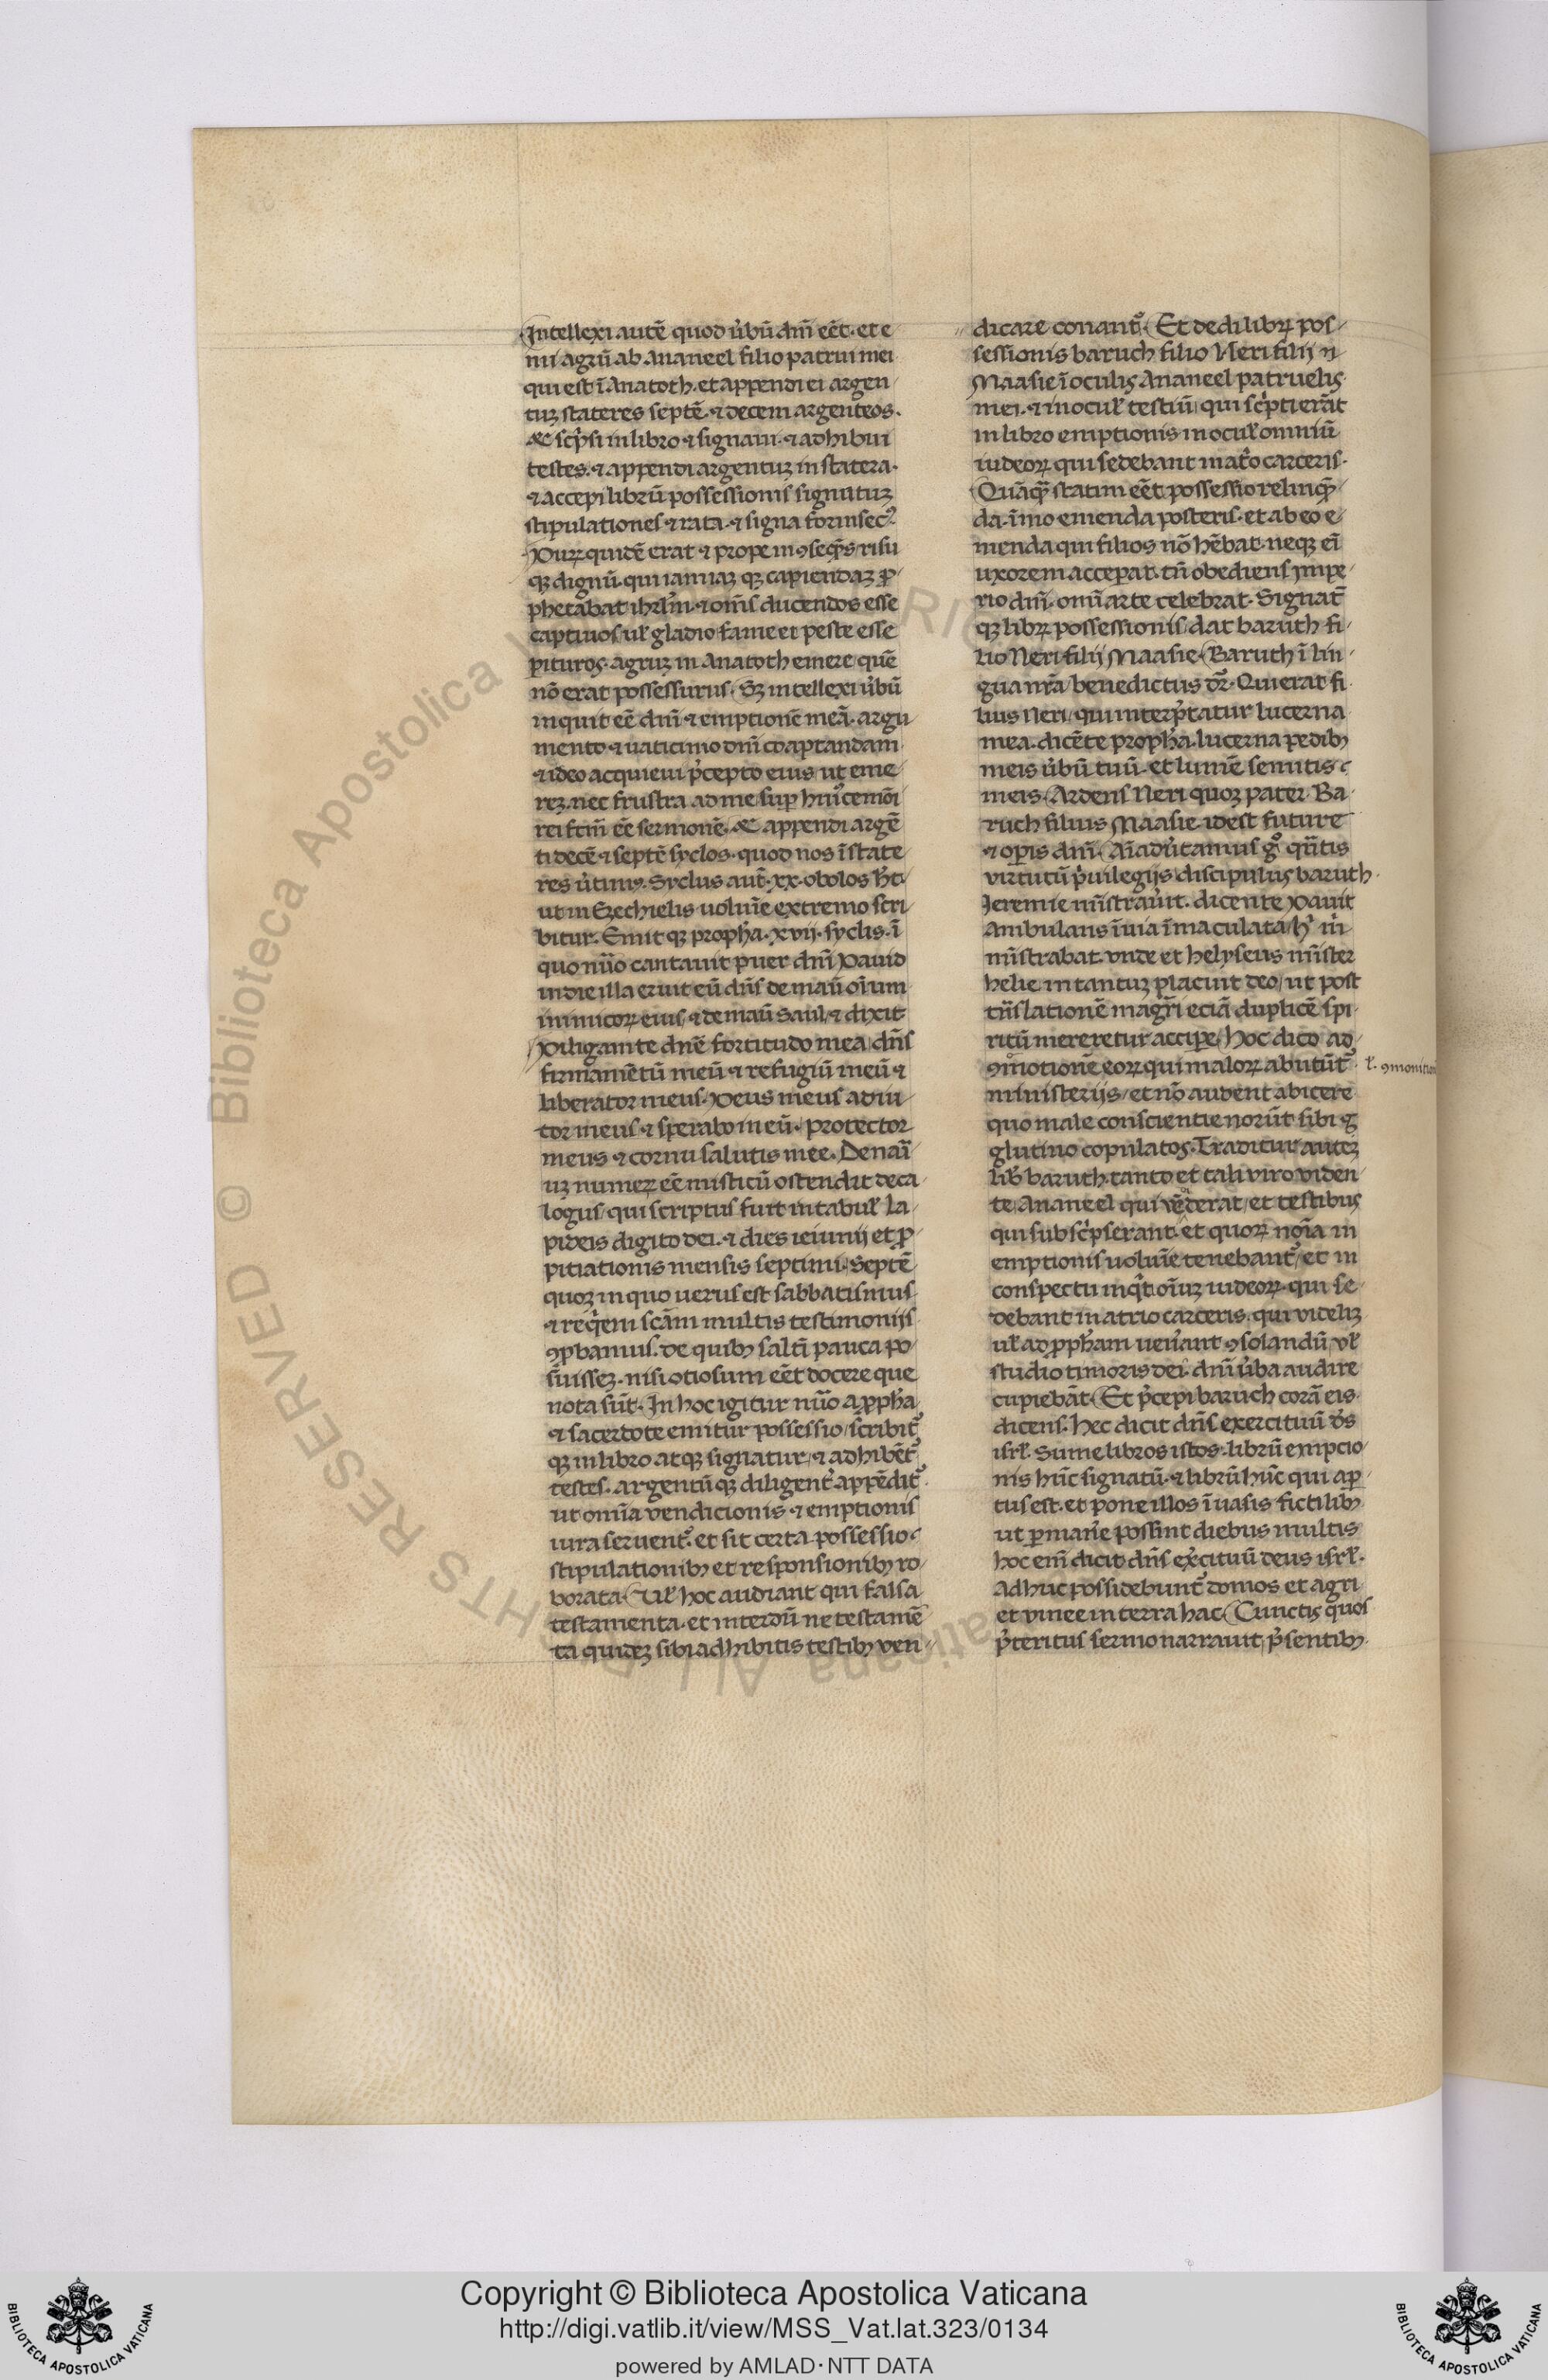 Intellexi autē quod ủbũ dñi eẽt. et e
mi agrũ ab Ananeel filio patrui mei
qui est ĩ Anatoth. et appendi ei argen
tuꝫ stateres septẽ. ⁊ decem argenteos.
⁊ sc̉psi in libro ⁊ signaui. ⁊ adhibui
testes. ⁊ appendi argentuꝫ in statera.
⁊ accepi librũ possessionis signatuꝫ
stipulationes ⁊ rata. ⁊ signa forinsecꝰ.
Durꝝ quidẽ erat ⁊ prope inꝯseq̃s risu
qꝫ dignũ. qui iam iaꝫ qꝫ capiendaꝫ ꝓ
phetabat ihrlm̃. ⁊ om̃s ducendos esse
captiuos uł gladio fame et peste esse
perituros. agruꝫ in Anatoth emere quẽ
nõ erat possessurus. Sꝫ intellexi ủbũ
inquit eẽ dñi ⁊ emptionẽ meã. argu
mento ⁊ uaticinio dñi coaptandam
⁊ ideo acquieui p̉cepto eius ut eme
reꝫ. nec frustra ad me suꝑ hũꝰcemõi
rei fcm̃ eẽ sermonẽ. ⁊ appendi argẽ
ti decẽ ⁊ septẽ syclos. quod nos ĩ state
res ủtimꝰ. Syclus aut̃. xx. obolos hꝫ
ut in Ezechielis uoluĩe extremo scri
bitur. Emit qꝫ prophã. xvij. syclis. ĩ
quo nũo cantauit puer dñi Dauid
in die illa eruit eũ dñs de manũ oĩum
inimicoꝝ eius ⁊ de manũ Saul ⁊ dixit
Diligam te dñe fortitudo mea dñs
firmamẽtũ meũ ⁊ refugiũ meũ ⁊
liberator meus. Deus meus adiu
tor meus ⁊ sperabo in eũ. protector
meus ⁊ cornu salutis mee. Denarĩ
uꝫ numeꝝ eẽ misticũ ostendit deca
logus qui scriptus fuit in tabuł la
pideis digito dei. ⁊ dies ieiunij et ꝓ
pitiationis mensis septimi. Septẽ
quoꝫ in quo uerus est sabbatismus
⁊ req̃em scãm multis testimonijs
ꝯꝓbamus. de quibꝫ saltĩ pauca po
s̃uisseꝫ. nisi otiosum eẽt docere que
nota sũt. In hoc igitur nũo a ꝓphã
⁊ sacerdote emitur possessio scribitꝰ
qꝫ in libro atqꝫ signatur ⁊ adhibẽtꝰ
testes. argentũ qꝫ diligent̉ appẽditꝰ
ut omĩa vendicionis ⁊ emptionis
iura seruentꝰ. et sit certa possessio
stipulationibꝫ et responsionibꝫ ro
borata. Uł hoc audiant qui falsa
testamenta. et interdũ ne testamẽ
ta quideꝫ sibi adhibitis testibꝫ ven
dicare conantꝰ. Et dedi libꝝ pos
sessionis baruch filio Neri filij
Maasie ĩ oculis Ananeel patruelis
mei. ⁊ in ocuł testiũ qui sc̉pti erãt
in libro emptionis in ocuł omniũ
iudeoꝝ qui sedebant in at̉o carceris.
Quãq̃ statim eẽt possessio relinq̃
da. ĩmo emenda posteris. et ab eo e
menda qui filios nõ hẽbat. neqꝫ eĩ
uxorem acceperat. tñ obediens impe
rio dñi. om̃i arte celebrat. Signat̃
qꝫ libꝝ possessionis dat baruch fi
lio Neri filij Maasie. Baruch ĩ lin
gua nr̃a benedictus dr̃. Qui erat fi
lius Neri qui interp̉tatur lucerna
mea. dicẽte prophã. lucerna pedibꝫ
meis ủbũ tuũ. et lumẽ semitis
meis. Ardens Neri quoꝫ pater Ba
ruch filius Maasie. idest future
⁊ oꝑis dñi. Aĩaduertamus gͦ qñtis
virtutũ p̉uilegijs discipulus baruch
Jeremie mĩstrauit. dicente Dauit
Ambulans ĩ uia ĩmaculata hͥ m̉
mĩstrabat. vnde et helyseus mĩster
helie in tantuꝫ placuit deo ut post
trãslationẽ magr̃i eciã duplicẽ spi
ritũ mereretur acciꝑe. hoc dico ad
ꝯmotionẽ eoꝝ qui maloꝝ abutũtꝰ. ł. ꝯmonition
ministerijs et nõ audent abicere
quo male conscientie norũt sibi g
glutino copulatos. Traditur auteꝫ
lib̉ baruch. tanto et tali viro viden
te Ananeel qui vẽdiderat et testibus
qui subsc̉pserant et quoꝝ noĩa in
emptionis uoluĩe tenebantꝰ et in
conspectu inq̉t oĩuꝫ iudeoꝝ. qui se
debant in atrio carceris. qui videliꝫ
uł ad ꝓphãm uen̉ant ꝯsolandũ vł
studio timoris dei. dñi ủba audire
cupiebãt. Et p̉cepi baruch corã eis
dicens. hec dicit dñs exercituũ dṡ
isrł. Sume libros istos. librũ empcio
nis hũc signatũ. ⁊ librũ hũc qui aꝑ
tus est. et pone illos ĩ uasis fictilibꝫ
ut ꝑman̉e possint diebus multis
hoc em̃ dicit dñs ex̉cituũ deus isrł.
Adhuc possidebuntꝰ domos et agri
et vinee in terra hac. Cunctis quos
p̉teritus sermo narrauit p̉sentibꝫ
Copyright © Biblioteca Apostolica Vaticana
http://digi.vatlib.it/view/MSS_Vat.lat.323/0134
powered by AMLAD·NTT DATA